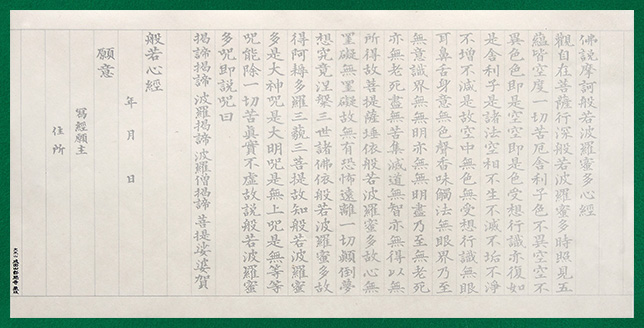 佛説摩訶般若波羅蜜多心經
觀自在菩薩行深般若波羅蜜多時照見五
蘊皆空度一切苦厄舍利子色不異空空不
異色色即是空空即是色受想行識亦復如
是舍利子是諸法空相不生不滅不垢不淨
不增不減是故空中無色無受想行識無眼
耳鼻舌身意無色聲香味觸法無眼界乃至
無意識界無無明亦無無明盡乃至無老死
亦無老死盡無苦集滅道無智亦無得以無
所得故菩提薩埵依般若波羅蜜多故心無
罣礙無罣礙故無有恐怖遠離一切顛倒夢
想究竟涅槃三世諸佛依般若波羅蜜多故
得阿耨多羅三藐三菩提故知般若波羅蜜
多是大神呪是大明呪是無上呪是無等等
呪能除一切苦真實不虛故説般若波羅蜜
多呪即説呪曰
揭諦揭諦 波羅揭諦 波羅僧揭諦 菩提娑婆賀
般若心經
年 月 日
願意
寫經願主
住所